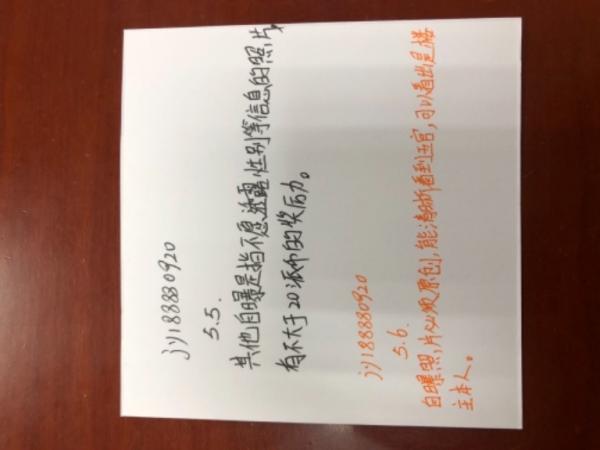 jy188880920
5.5.
其他自曝是指不愿透露性别等信息的照片
有不大于20派币的奖励。
jy188880920
5.6.
自曝照片必须原创,能清晰看到五官,可以看出是楼
主本人。